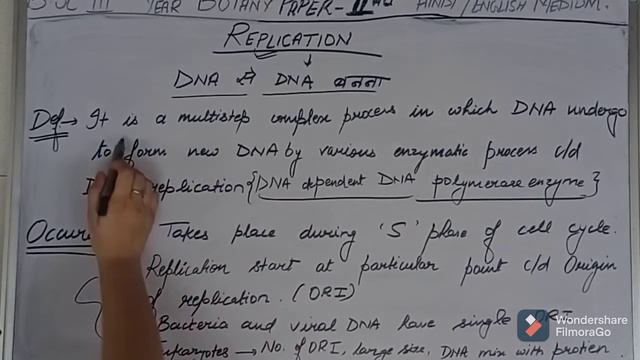 BSC III YEAR BOTANY PAPER-II nd HINDI/ENGLISH MEDIUM.
REPLICATION
↓
DNA से DNA बनना
Def → It is a multistep complex process in which DNA undergo
to form new DNA by various enzymatic process c/d
replication {DNA dependent DNA polymerase enzyme}
Takes place during 'S' phase of cell cycle.
Replication start at particular point c/d Origin
of replication. (ORI)
Bacteria and viral DNA have single ORI
Eukaryotes → No. of ORI, large size, DNA mix with protien
Wondershare
FilmoraGo